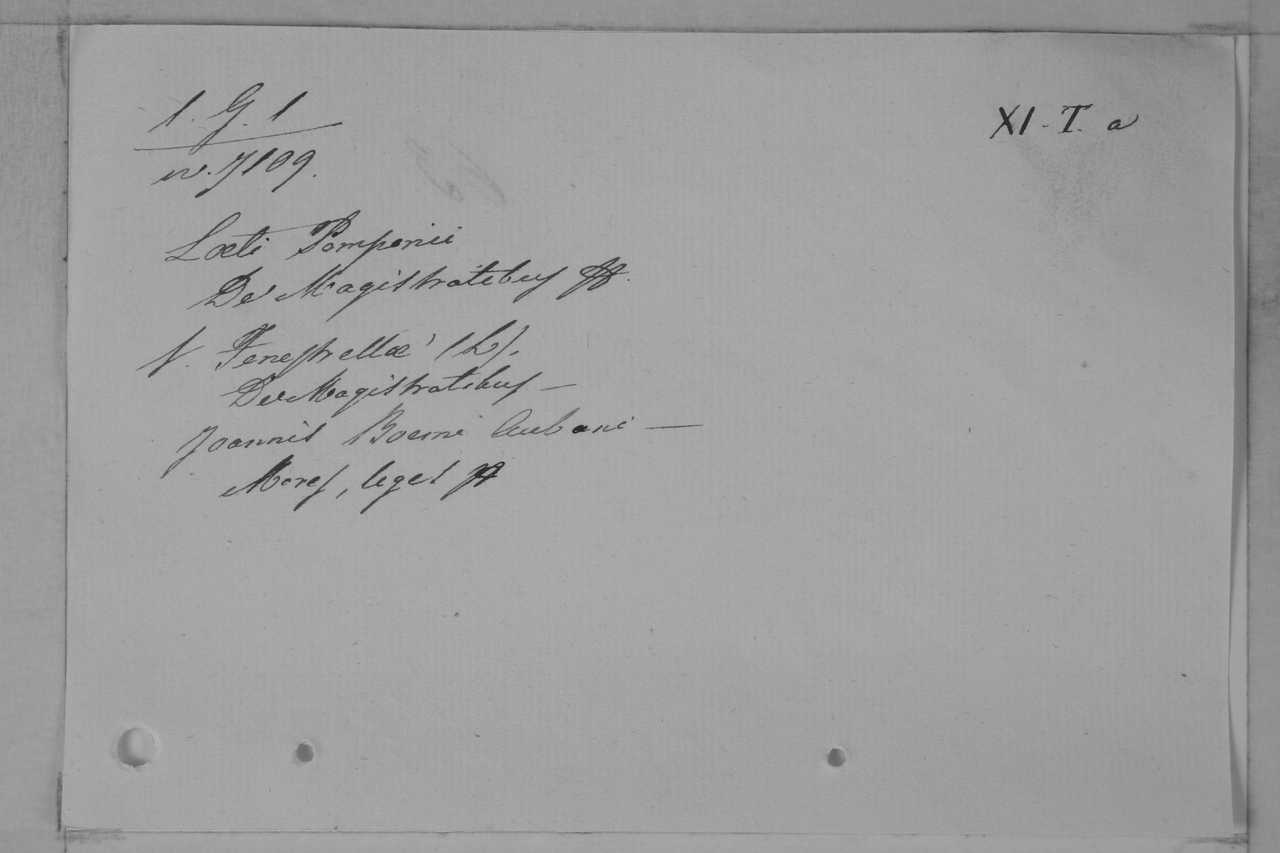 1. G. 1
XI - T. a
n. 7109.
Læti Pomponii
De Magistratibus
Fenestellæ (L).
De Magistratibus —
Joannis Boemi Aubani —
Mores, leges